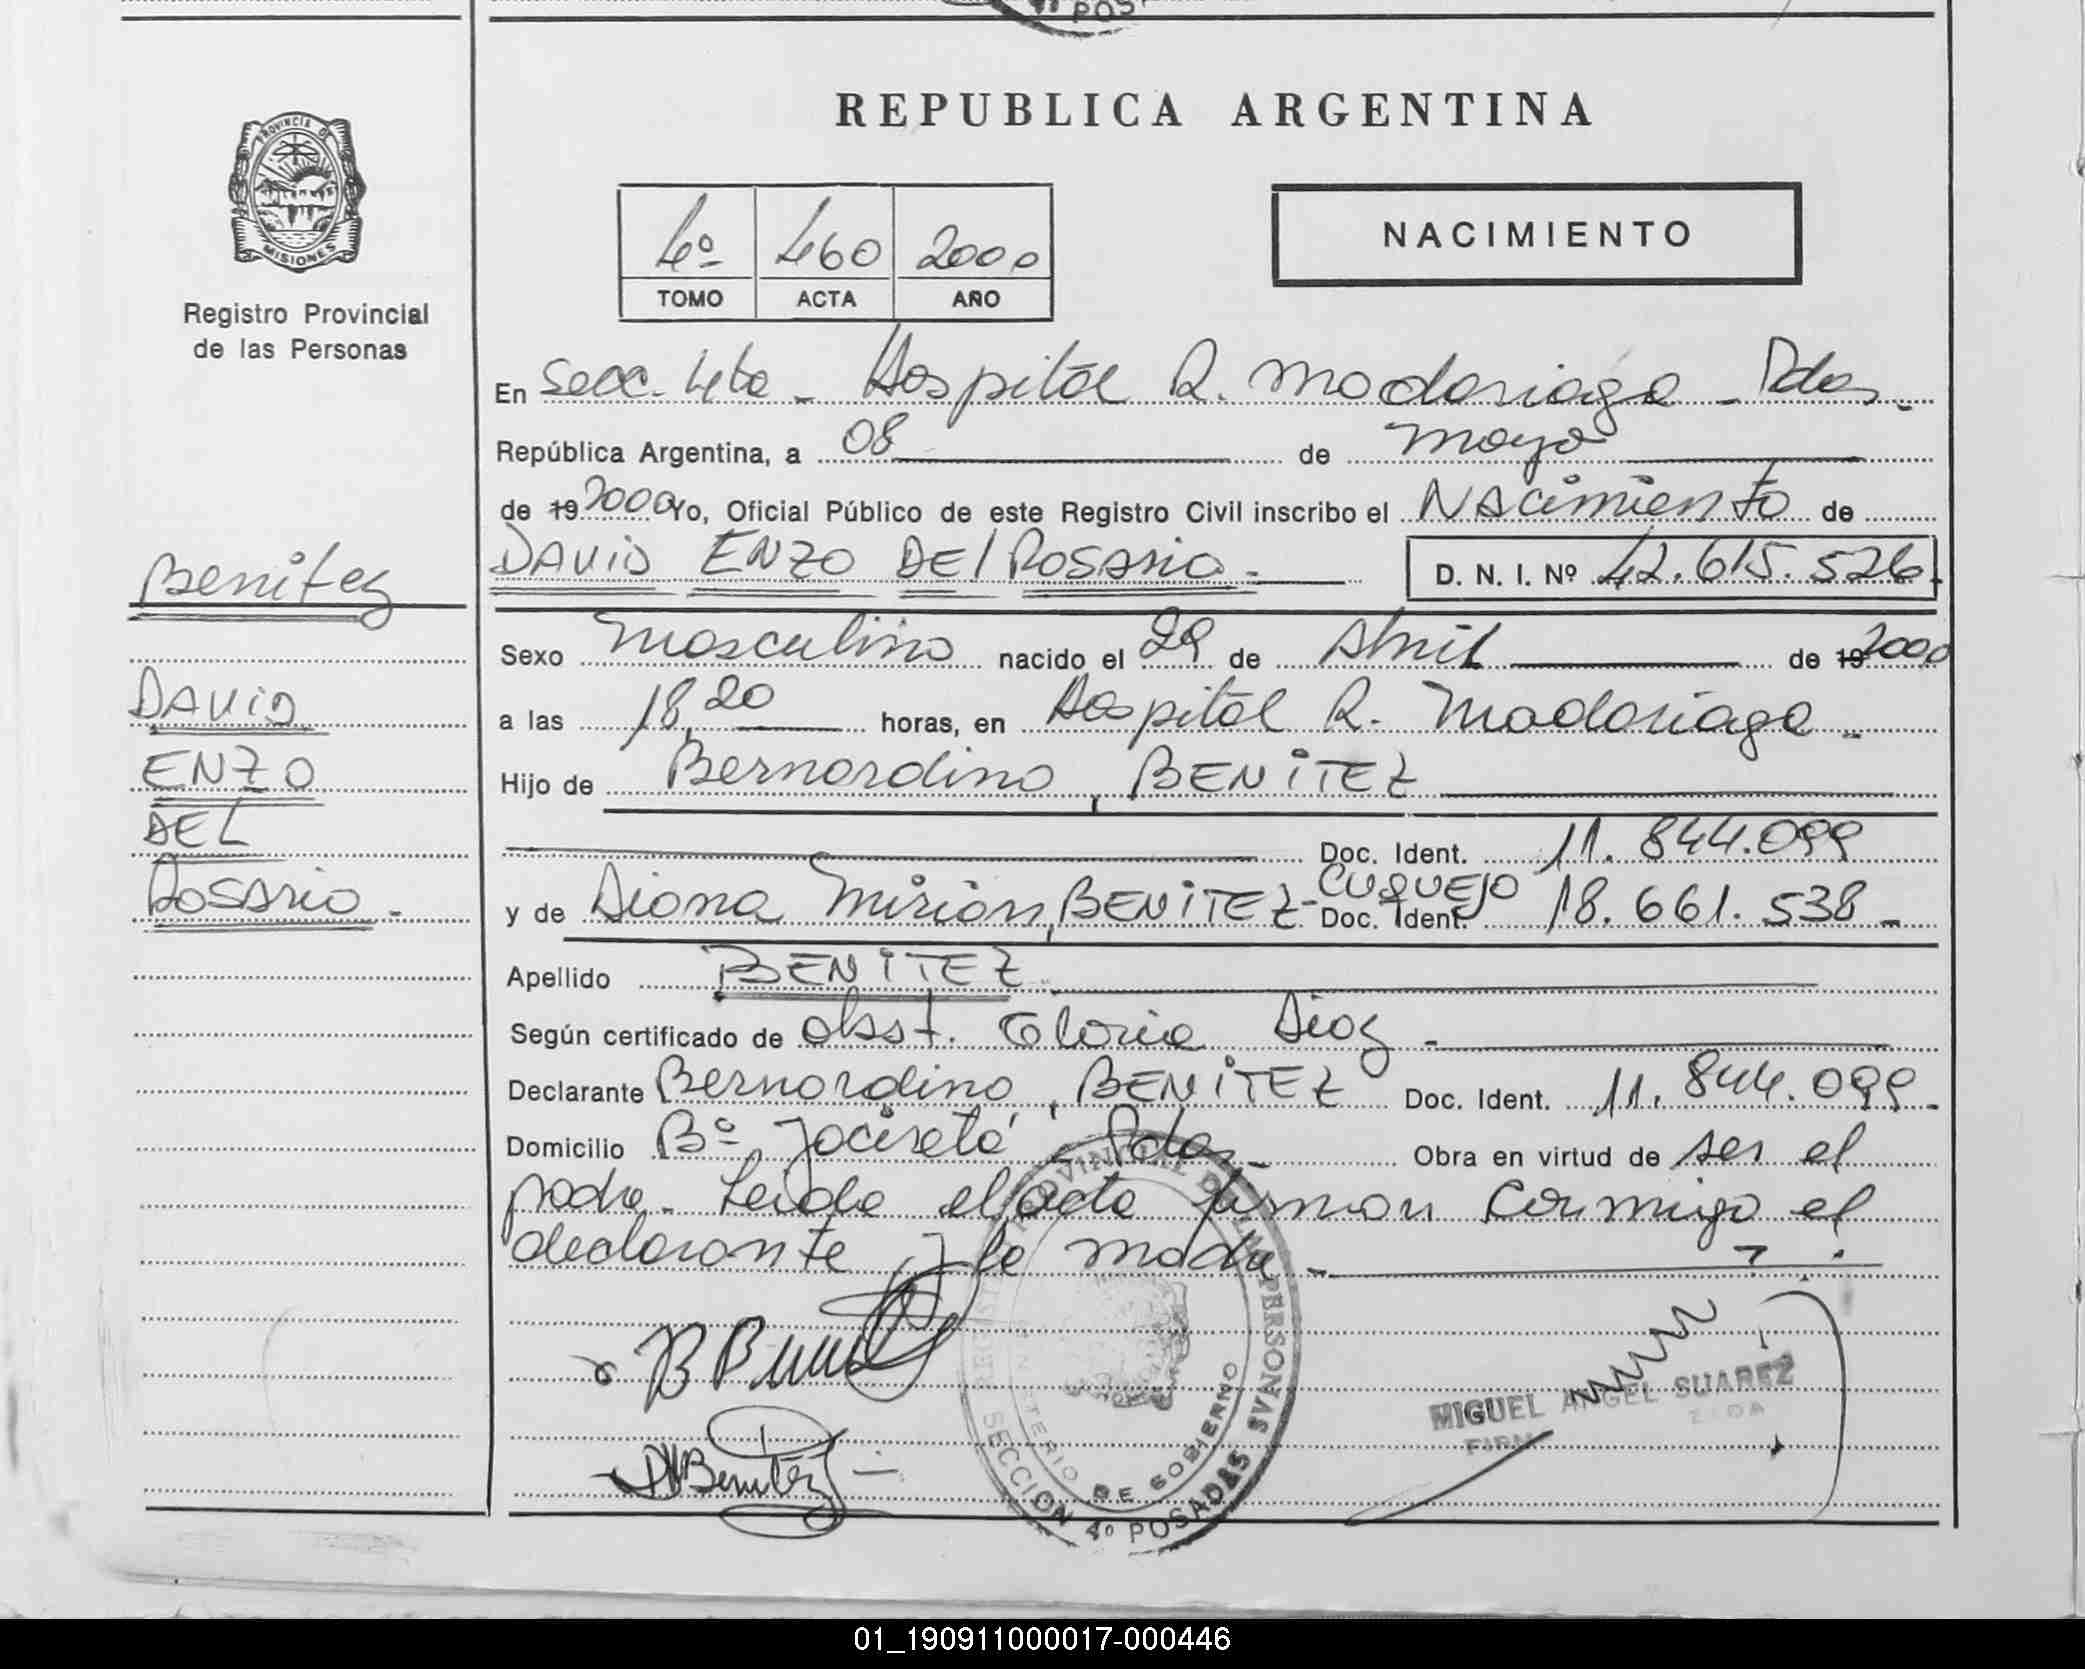 POS
REPUBLICA ARGENTINA
PROVINCIA DE
MISIONES
Registro Provincial
de las Personas
4º 460 2000
TOMO ACTA AÑO
NACIMIENTO
En Secc. 4ta - Hospital R. Madariaga - Pdas.
República Argentina, a 08 de mayo
de 19 2000 Yo, Oficial Público de este Registro Civil inscribo el NAcimiento de
DAViD ENZO DEl ROSARio.- D. N. I. Nº 42.615.526.
Benitez
DAViD
ENZO
DEL
ROSARio.-
Sexo masculino nacido el 29 de Abril de 19 2000
a las 18,20 horas, en Hospital R. Madariaga
Hijo de Bernardino, BENiTEZ
Doc. Ident. 11.844.099
y de Diana Mirian, BENiTEZ-CUQUEJO Doc. Ident. 18.661.538-
Apellido BENiTEZ
Según certificado de obst. Gloria Diaz -
Declarante Bernardino, BENiTEZ Doc. Ident. 11.844.099-
Domicilio Bº Yacireta - Pdas Obra en virtud de ser el
padre. Leida el acta firman conmigo el
declarante y la madre -
B Beni
DMBenitez
REGISTRO PROVINCIAL DE LAS PERSONAS
MINISTERIO DE GOBIERNO
SECCION 4º POSADAS
MIGUEL ANGEL SUAREZ
01_190911000017-000446